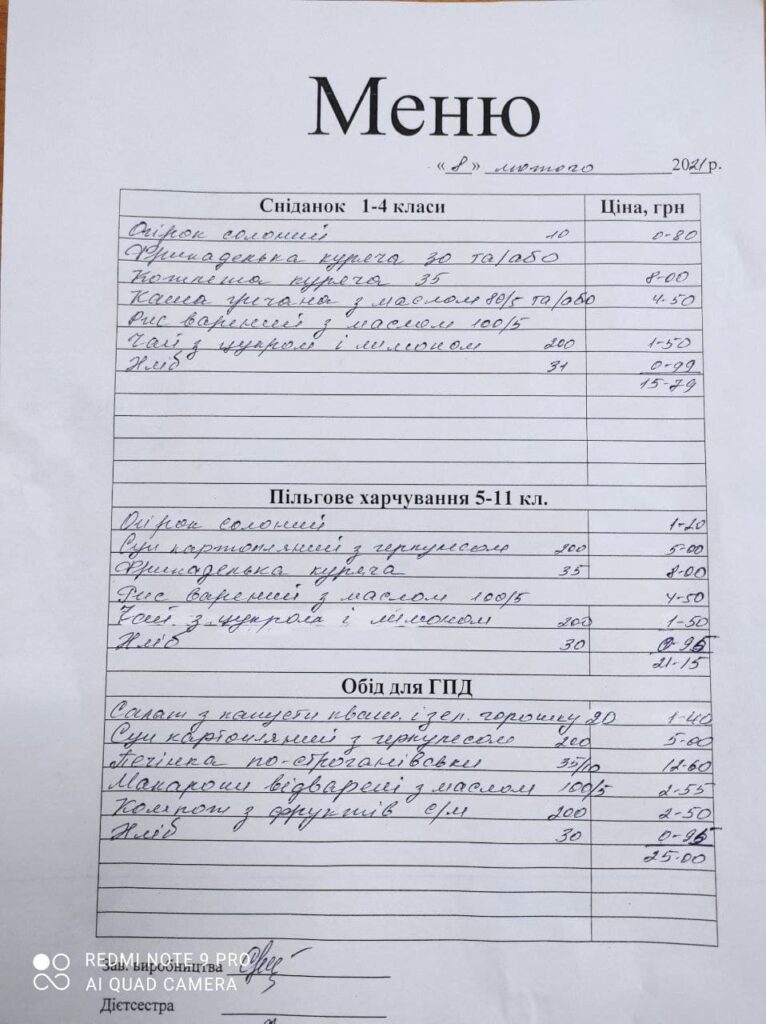 Меню
« 8 » лютого 2021р.
Сніданок 1-4 класи Ціна, грн
Огірок солоний 10 0-80
Фрикаделька куряча 30 та/або
Котлета куряча 35 8-00
Каша гречана з маслом 80/5 та/або 4-50
Рис варений з маслом 100/5
Чай з цукром і лимоном 200 1-50
Хліб 31 0-99
15-79
Пільгове харчування 5-11 кл.
Огірок солоний 1-20
Суп картопляний з геркулесом 200 5-00
Фрикаделька куряча 35 8-00
Рис варений з маслом 100/5 4-50
Чай з цукром і лимоном 200 1-50
Хліб 30 0-95
21-15
Обід для ГПД
Салат з капусти кваш. і зел. горошку 20 1-40
Суп картопляний з геркулесом 200 5-00
Печінка по-строганівськи 35/10 12-60
Макарони відварені з маслом 100/5 2-55
Компот з фруктів с/м 200 2-50
Хліб 30 0-95
25-00
Зав. виробництва
Дієтсестра
REDMI NOTE 9 PRO
AI QUAD CAMERA